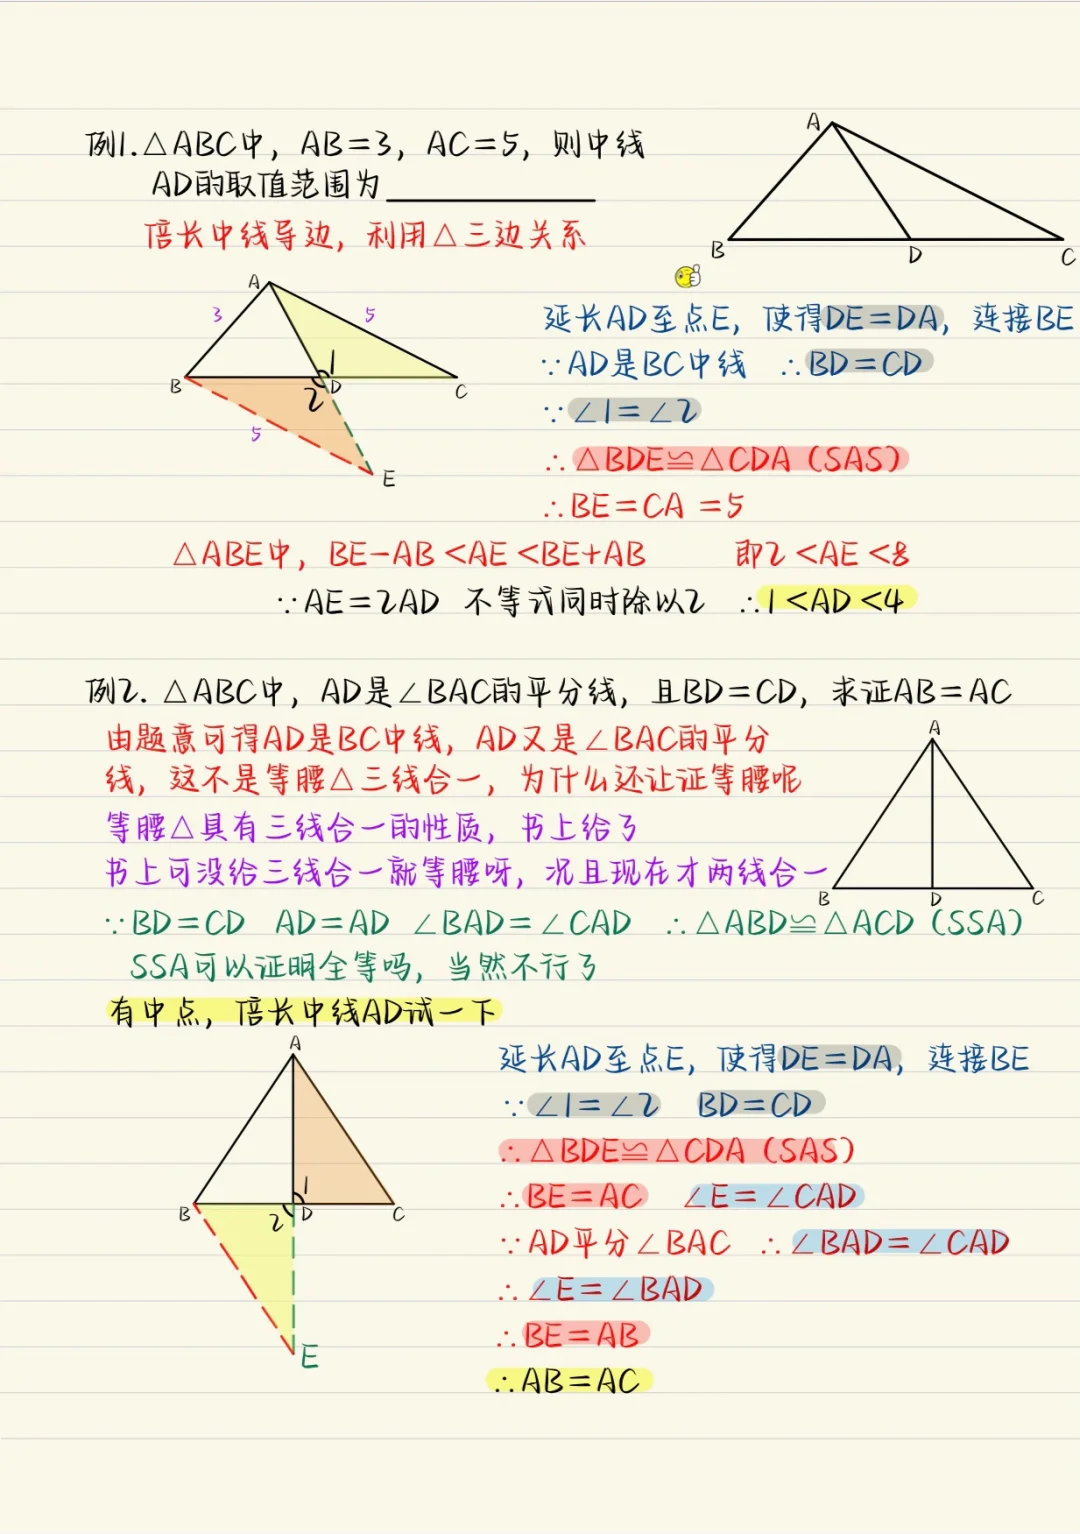 例1.△ABC中，AB=3，AC=5，则中线
AD的取值范围为
倍长中线导边，利用△三边关系
A
B
D
C
A
3
5
1
B
2
D
C
5
E
延长AD至点E，使得DE=DA，连接BE
∵AD是BC中线 ∴BD=CD
∵∠1=∠2
∴△BDE≌△CDA（SAS）
∴BE=CA =5
△ABE中，BE-AB<AE<BE+AB 即2<AE<8
∵AE=2AD 不等式同时除以2 ∴1<AD<4
例2. △ABC中，AD是∠BAC的平分线，且BD=CD，求证AB=AC
由题意可得AD是BC中线，AD又是∠BAC的平分
线，这不是等腰△三线合一，为什么还让证等腰呢
等腰△具有三线合一的性质，书上给了
书上可没给三线合一就等腰呀，况且现在才两线合一
A
B
D
C
∵BD=CD AD=AD ∠BAD=∠CAD ∴△ABD≌△ACD（SSA）
SSA可以证明全等吗，当然不行了
有中点，倍长中线AD试一下
A
1
B
2
D
C
E
延长AD至点E，使得DE=DA，连接BE
∵∠1=∠2 BD=CD
∴△BDE≌△CDA（SAS）
∴BE=AC ∠E=∠CAD
∵AD平分∠BAC ∴∠BAD=∠CAD
∴∠E=∠BAD
∴BE=AB
∴AB=AC